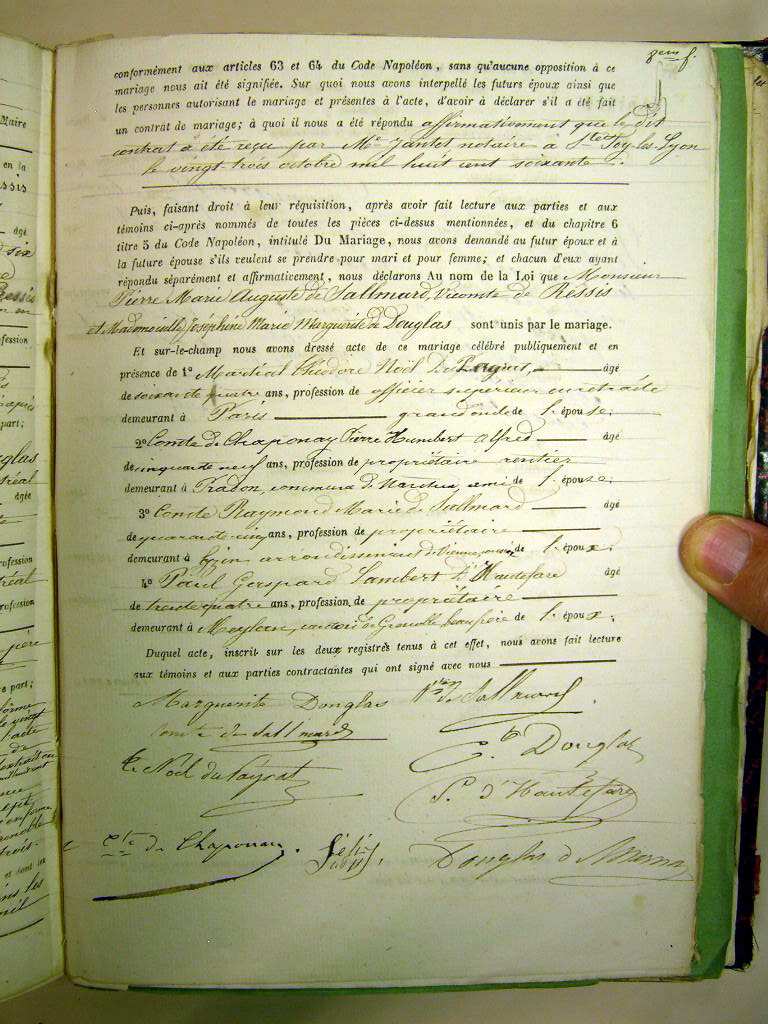 8eme f.
conformément aux articles 63 et 64 du Code Napoléon, sans qu'aucune opposition à ce
mariage nous ait été signifiée. Sur quoi nous avons interpellé les futurs époux ainsi que
les personnes autorisant le mariage et présentes à l'acte, d'avoir à déclarer s'il a été fait
un contrat de mariage; à quoi il nous a été répondu affirmativement que le dit
contrat a été reçu par Me Jantet notaire à Ste Foy-les-Lyon
le vingt trois octobre mil huit cent soixante.
Puis, faisant droit à leur réquisition, après avoir fait lecture aux parties et aux
témoins ci-après nommés de toutes les pièces ci-dessus mentionnées, et du chapitre 6
titre 5 du Code Napoléon, intitulé Du Mariage, nous avons demandé au futur époux et à
la future épouse s'ils veulent se prendre pour mari et pour femme; et chacun d'eux ayant
répondu séparément et affirmativement, nous déclarons Au nom de la Loi que Monsieur
Pierre Marie Auguste de Sallmard, Vicomte de Réssis
et Mademoiselle Joséphine Marie Marguerite de Douglas sont unis par le mariage.
Et sur-le-champ nous avons dressé acte de ce mariage célébré publiquement et en
présence de 1° Martial Théodore Noël Du Payrat, âgé
de soixante quatre ans, profession de officier supérieur en retraite
demeurant à Paris grand oncle de l'épouse;
2° Comte de Chaponay Pierre Humbert Alfred âgé
de cinquante neuf ans, profession de propriétaire rentier
demeurant à Pradon, commune de ami de l'épouse;
3° Comte Raymond Marie de Sallmard âgé
de quarante-cinq ans, profession de propriétaire
demeurant à arrondissement de Vienne, cousin de l'époux;
4° Paul Gaspard Lambert d'Hautefare âgé
de trente quatre ans, profession de propriétaire
demeurant à Meylan, canton de Grenoble, beau frère de l'époux;
Duquel acte, inscrit sur les deux registres tenus à cet effet, nous avons fait lecture
aux témoins et aux parties contractantes qui ont signé avec nous
Marguerite Douglas Vte de Sallmard
comte de Sallmard
Cte Douglas
Noël du Payrat
P. d'Hautefare
Cte de Chaponay.
Douglas